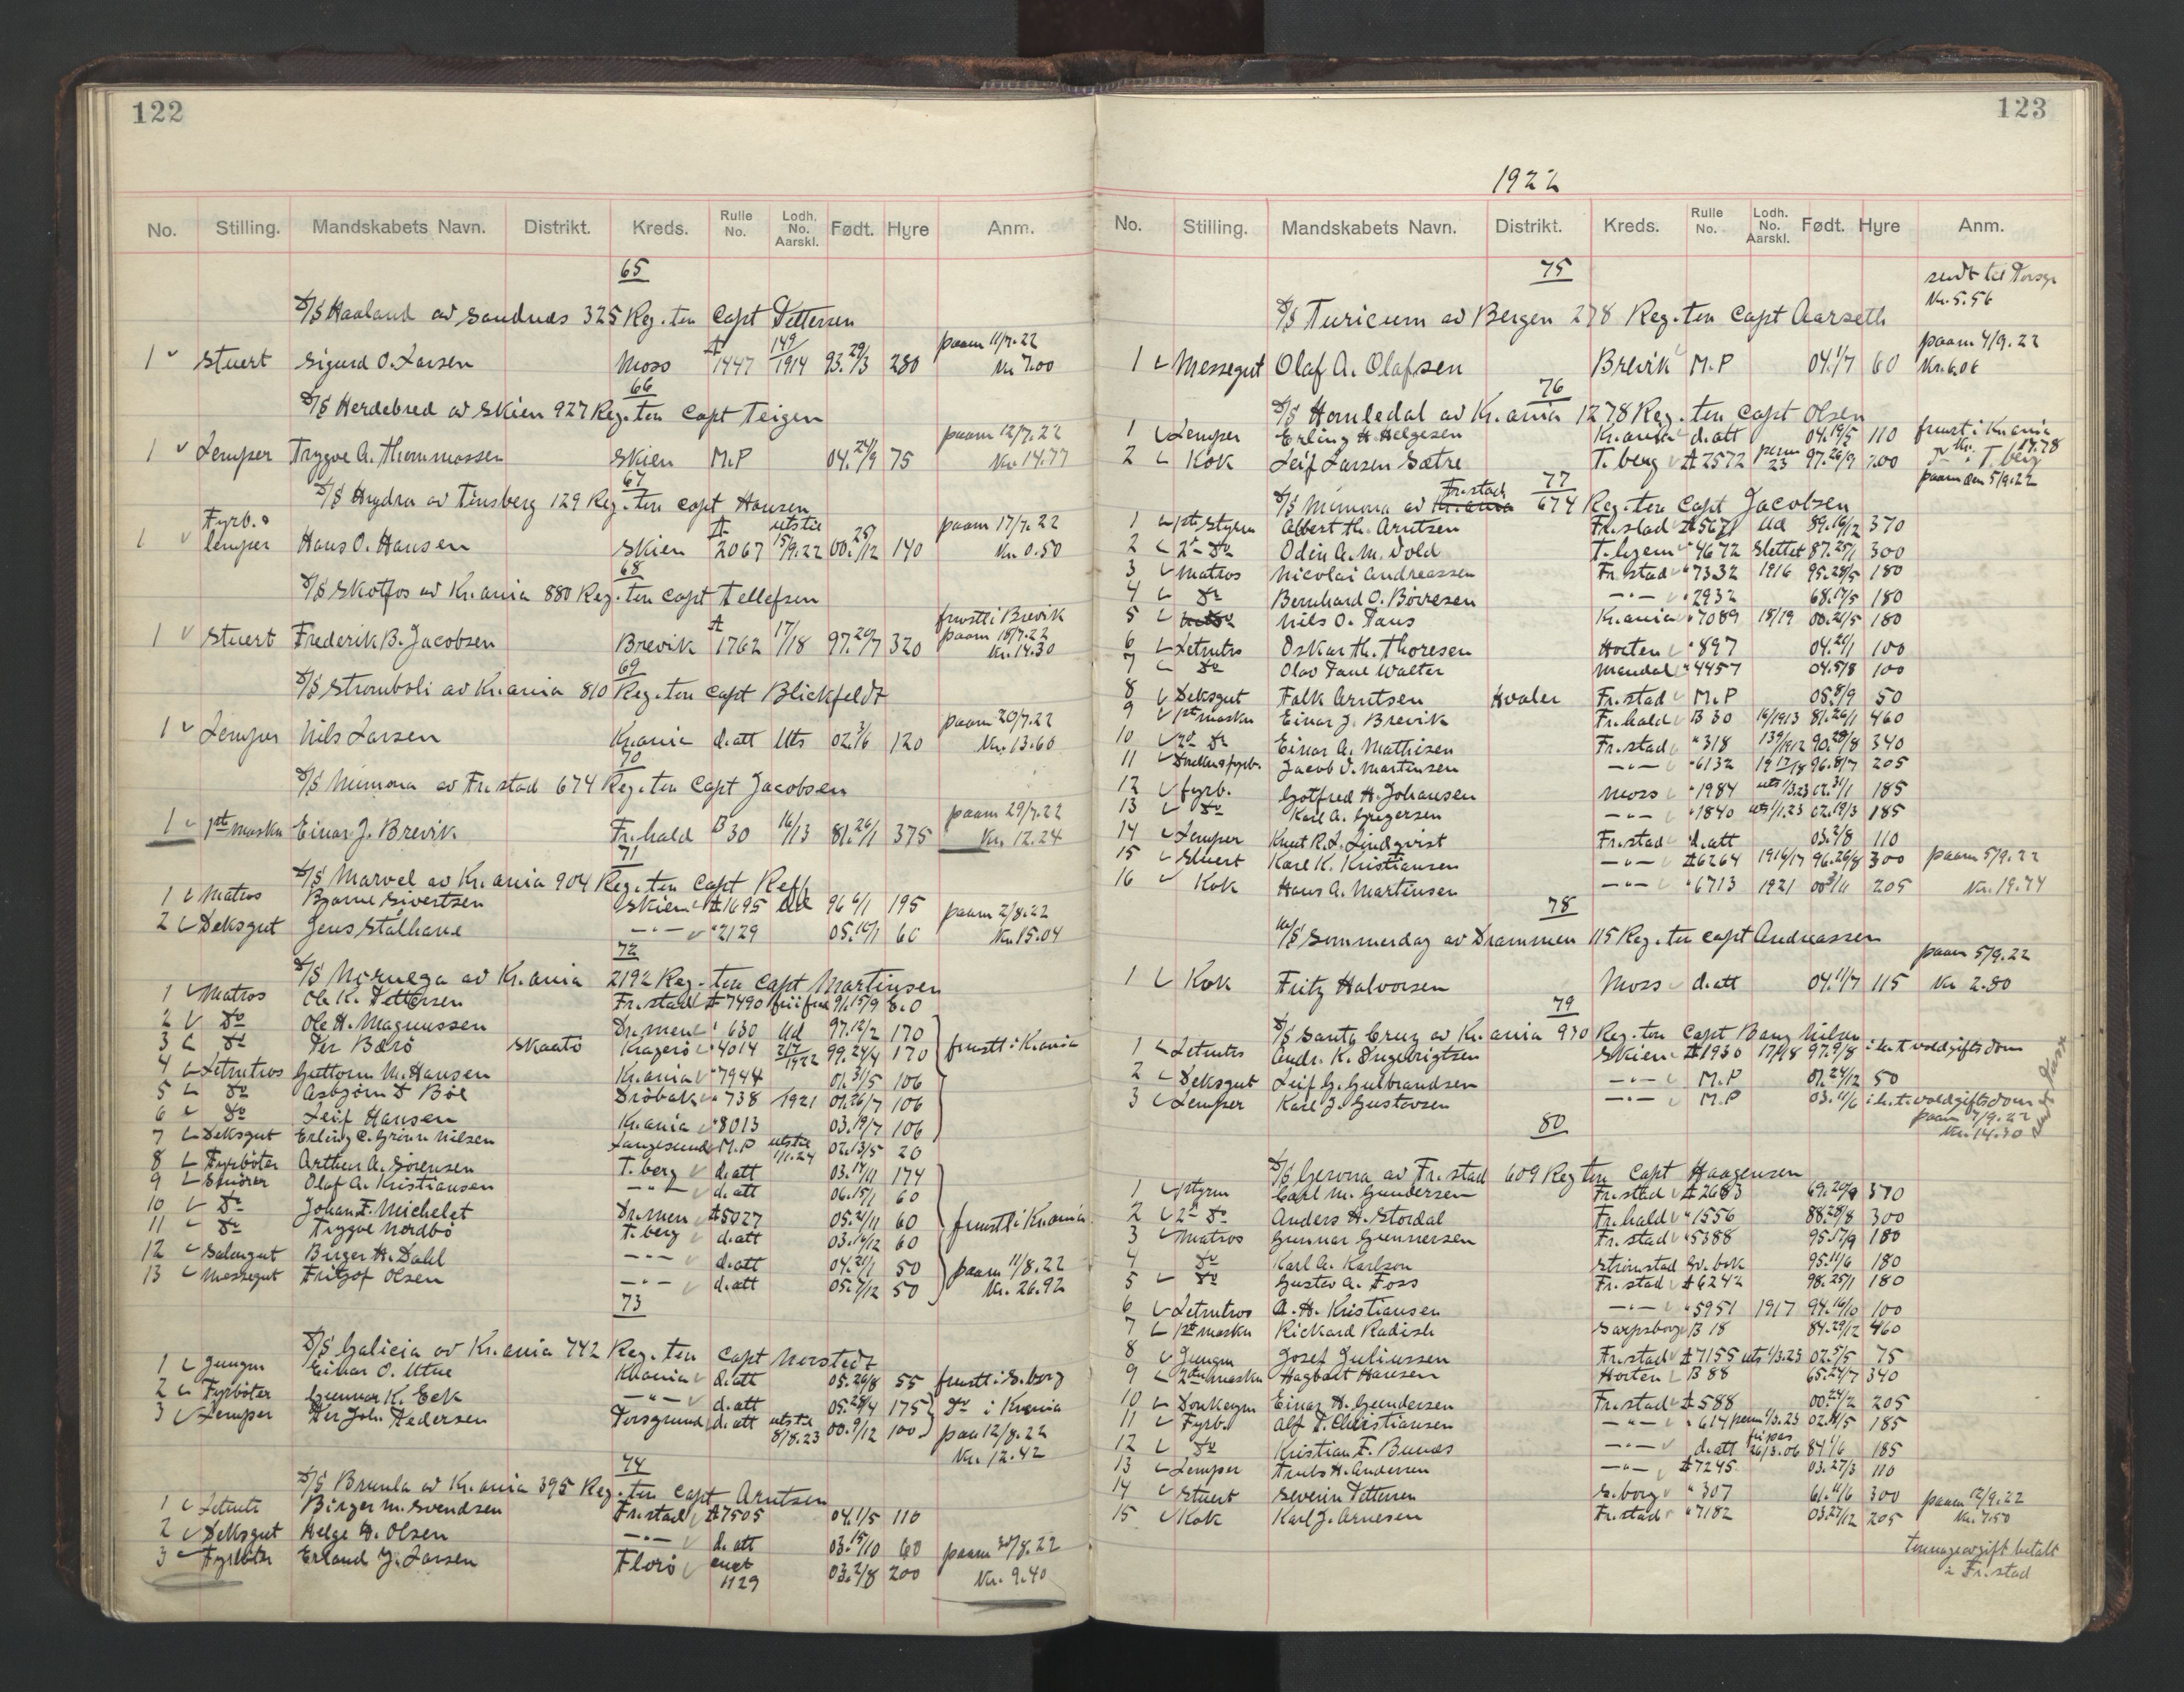 122
No. Stilling. Mandskabets Navn. Distrikt. Kreds. Rulle No. Lodh. No. Aarskl. Født. Hyre Anm.
65
D/S Haaland av Sandnes 325 Reg. ton Capt Pettersen
1 Stuert Sigurd O. Larsen Moss A 1447 149/1914 93.29/3 280 paam 11/7.22 Kr. 7.00
66
D/S Herdebred av Skien 927 Reg. ton Capt Teigen
1 Lemper Trygve A. Thommassen Skien M.P 04.24/9 75 paam 12/7.22 Kr. 14.77
67
D/S Hydra av Tønsberg 129 Reg. ton Capt Hansen
1 Fyrb. & lemper Hans O. Hansen Skien A 2067 uts til 15/9.22 00.25/12 140 paam 17/7.22 Kr. 0.50
68
D/S Skotfos av Kr.ania 880 Reg. ton Capt Tellefsen
1 Stuert Frederik B. Jacobsen Brevik A 1762 17/18 97.20/7 320 frmstt i Brevik paam 18/7.22 Kr. 14.30
69
D/S Stromboli av Kr.ania 810 Reg. ton Capt Blickfeldt
1 Lemper Nils Larsen Kr.ania d.att Uts 02.3/6 120 paam 20/7.22 Kr. 13.60
70
D/S Mimona av Fr.stad 674 Reg. ton Capt Jacobsen
1 1ste maskn Einar J. Brevik Fr.hald B 30 16/13 81.26/1 375 paam 29/7.22 Kr. 12.24
71
D/S Marvel av Kr.ania 904 Reg. ton Capt Reff
1 Matros Bjarne Sivertsen Skien A 1695 Ud 96 6/1 195 paam 2/8.22
2 Deksgut Jens Stålhane -"- " 2129 05.10/1 60 Kr. 15.04
72
D/S Noruega av Kr.ania 2192 Reg. ton Capt Martinsen
1 Matros Ole K. Pettersen Fr.stad A 7490 91.15/9
2 Do Ole H. Magnussen Dr.men " 630 Ud 97.12/2 170
3 Do Per Bærø Skaatö Kragerö " 4014 217/1922 99.24/4 170 frmstt i Kr.ania
4 Letmtros Guttorm M. Hansen Kr.ania " 7944 01.31/5 106
5 Do Asbjørn D Böe Dröbak " 738 1921 01.26/7 106
6 Do Leif Hansen Kr.ania " 8013 03.19/7 106
7 Deksgut Erling C. Grönn Nilsen Langesund M.P uts til 1/1.24 02.13/5 20
8 Fyrböter Arthur A. Sörensen T.berg d.att 03.14/11 174
9 Olaf A. Kristiansen -"- d.att 06.15/1 60
10 Do Johan F. Michelet Dr.men A 5027 05.2/11 60 frmstt i Kr.ania
11 Do Trygve Nordbö T.berg d.att 03.16/12 60
12 Salongut Birger H. Dahl -"- d.att 04.21/1 50 paam 11/8.22
13 Messegut Fritjof Olsen -"- d.att 05.7/12 50 Kr. 26.92
73
D/S Galicia av Kr.ania 742 Reg. ton Capt Norstedt
1 Jungm Einar O. Utne Kr.ania d.att 05.26/8 55 frmstt i S.borg
2 Fyrböter Gunnar K. Eek -"- d.att 05.28/4 175 Do i Kr.ania
3 Lemper Per Joh. Pedersen Porsgrund d.att uts til 8/8.23 00.9/12 100 paa 12/8.22
Kr. 12.42
74
D/S Brunla av Kr.ania 395 Reg. ton Capt Arntsen
1 Letmts Birger M. Svendsen Fr.stad A 7505 04.1/5 110
2 Deksgut Helge H. Olsen -"- d.att 03.15/10 60 paam /8.22
3 Fyrböter Erland J. Larsen Florö 1129 03.2/8 200 Kr. 9.40
123
1922
No. Stilling. Mandskabets Navn. Distrikt. Kreds. Rulle No. Lodh. No. Aarskl. Født. Hyre Anm.
75 sendt til Porsgr Kr. 5.56
D/S Turicum av Bergen 278 Reg. ton Capt Aarseth
1 Messegut Olaf A. Olafsen Brevik M.P 04.1/7 60 paam 4/9.22 Kr. 6.06
76
D/S Homledal av Kr.ania 1278 Reg. ton Capt Olsen
1 Lemper Erling H. Helgesen Kr.ania d.att 04.19/5 110 frmst. i Kr.ania
2 Kok Leif Larsen Sætre T.berg A 2572 perm 23 97.26/9 200 Kr. 17.78 T. berg
77 paam den 5/9.22
D/S Mimona av Kr.ania Fr.stad 674 Reg. ton Capt Jacobsen
1 1ste Styrm Albert Th. Arntsen Fr.stad A 5671 Ud 89.16/12 370
2 2d Do Odin A. M. Vold T.hjem " 4672 Slettet 87.25/1 300
3 Matros Nicolai Andreassen Fr.stad " 7332 1916 95.28/5 180
4 Do Bernhard O. Børresen -"- " 2932 68.17/5 180
5 Do Nils O. Taus Kr.ania " 7089 18/19 00.21/5 180
6 Letmtrs Oskar Th. Thoresen Horten " 897 04.20/1 100
7 Do Olav Tane Walter Mandal " 4457 04.5/8 100
8 Deksgut Falk Arntsen Hvaler Fr.stad M.P 05.8/9 50
9 1ste maskn Einar J. Brevik Fr.hald B 30 16/1913 81.26/1 460
10 2d Do Einar A. Mathisen Fr.stad " 318 139/1912 90.28/8 340
11 Donkm & fyrb. Jacob O. Martinsen -"- " 6132 1917/18 96.8/7 205
12 Fyrb. Gotfred H. Johansen Moss " 1984 uts 1/3.23 02.31/1 185
13 Do Karl A. Gregersen -"- " 1840 uts 1/1.23 02.19/3 185
14 Lemper Knut R. L. Lindqvist Fr.stad d.att 03.2/8 110
15 Stuert Karl K. Kristiansen -"- A 6264 1916/17 96.26/8 300 paam 5/9.22
16 Kok Hans A. Martinsen -"- " 6713 1921 00 3/11 205 Kr. 19.74
78
M/S Sommerdag av Drammen 115 Reg. ton Capt Andreassen
1 Kok Fritz Halvorsen Moss d.att 04.11/7 115 paam 5/9.22 Kr 2.80
79
D/S Santa Cruz av Kr.ania 930 Reg. ton Capt Bang Nilsen
1 Letmtrs Andr. K. Ingebrigtsen Skien A 1930 17/18 97.9/8 i h. t. voldgiftsdom
2 Deksgut Leif G. Gulbrandsen -"- M.P 07.24/12 50
3 Lemper Karl J. Gustavsen -"- M.P 03.11/6 i h. t. voldgiftsdom
80 paam 7/9.22 Kr. 14.30
D/S Gerona av Fr.stad 609 Reg ton Capt Haagensen
1 1styrm Carl M. Gundersen Fr.stad A 2683 370
2 2d Do Anders H. Stordal Fr.hald " 1556 88.28/8 300
3 Matros Gunnar Gunnersen Fr.stad " 5388 95.17/9 180
4 Do Karl A. Karlson Strömstad Sv. bok 95.11/6 180
5 Do Gustav A. Foss Fr.stad A 6242 98.25/1 180
6 Letmtros A. H. Kristiansen -"- " 5951 1917 94.16/10 100
7 1ste maskn Rickard Radish Sarpsborg B 18 84.29/12 460
8 Jungm Josef Juliussen Fr.stad A 7155 uts 1/3.23 02.5/5 75
9 2den maskn Hagbart Hansen Horten B 88 65.24/7 340
10 Donkeym Einar H. Gundersen Fr.stad A 588 00.24/2 205
11 Fyrb. Alf T. Christiansen -"- " 614 perm 1/3.23 185
12 Do Kristian F. Bunæs -"- d.att fripas 26/3.06 84 1/6 185
13 Lemper H. Andersen -"- A 7245 03.27/3 110
14 Stuert Severin Pettersen S.borg " 307 61.11/6 300 paam 12/9.22
15 Kok Karl J. Arnesen Fr.stad " 7182 03.27/12 205 Kr. 7.50
tonnageavgift betalt
i Fr.stad